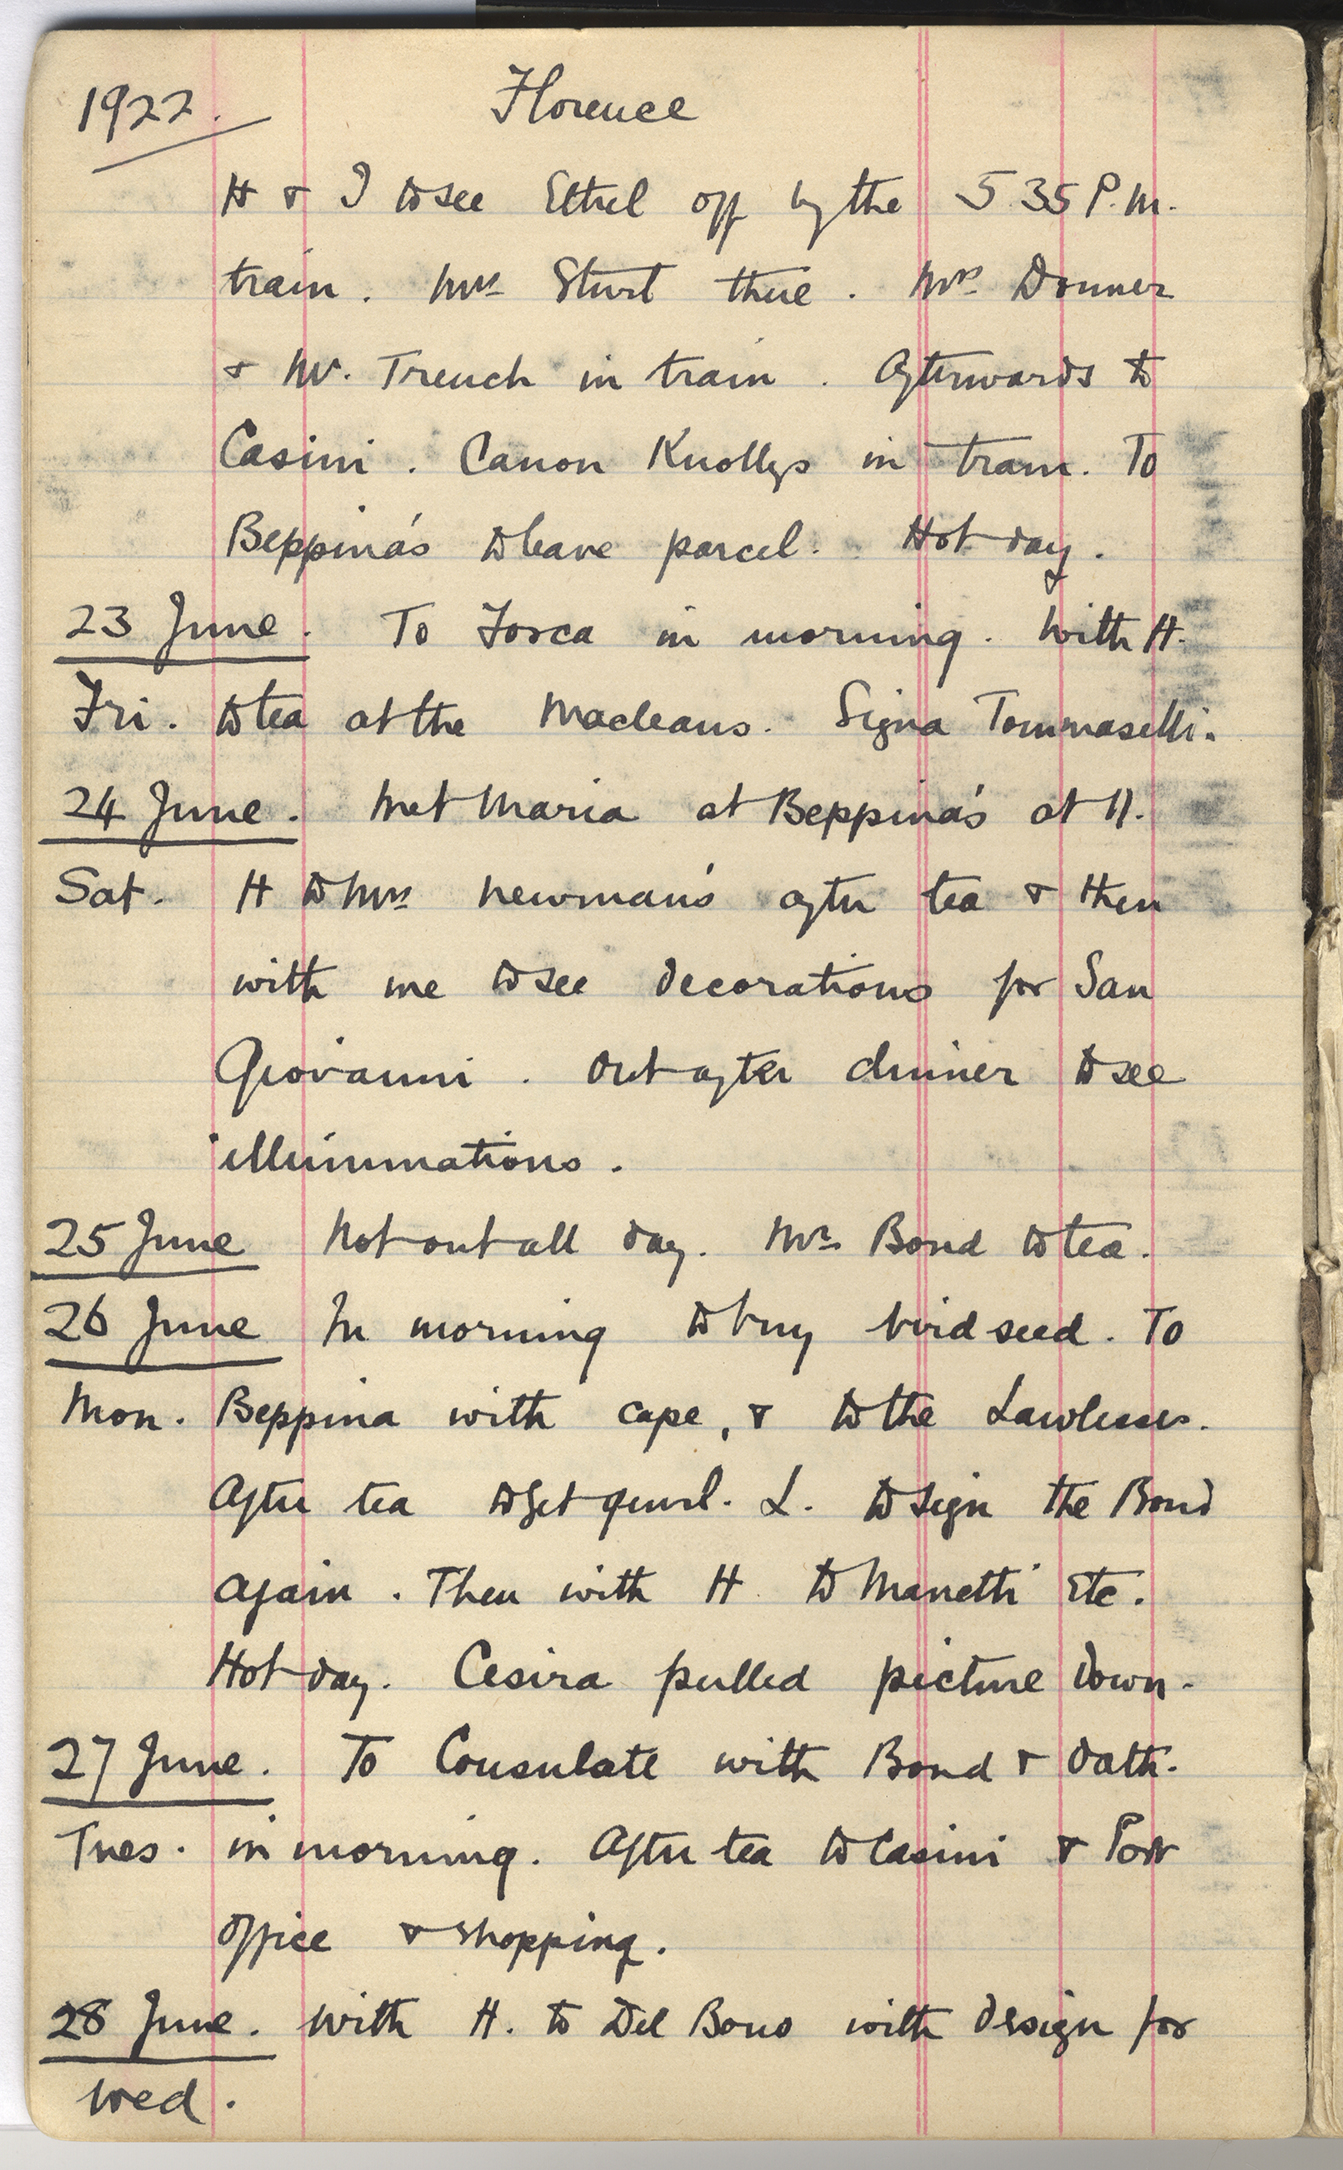 1922. Florence
H & I to see Ethel off by the 5.35 P.M.
train. Mrs Sturt there. Mrs Donner
& Mr. Trench in train. Afterwards to
Casini. Canon Knollys in tram. To
Beppina's to leave parcel. Hot day.
23 June. To Forca in morning. With H.
Fri. to tea at the Macleans. Signa Tommaselli.
24 June. Met Maria at Beppina's at 11.
Sat. H to Mrs Newman's after tea & then
with me to see decorations for San
Giovanni. Out after dinner to see
illuminations.
25 June Not out all day. Mrs Bond to tea.
26 June In morning to buy bird seed. To
Mon. Beppina with cape, & to the Lawlesses.
After tea to get L. to sign the Bond
again. Then with H to Manetti etc.
Hot day. Cesira pulled picture down.
27 June. To Consulate with Bond & Oath.
Tues. in morning. After tea to Casini & Post
office & shopping.
28 June. With H. to Del Bono with design for
Wed.